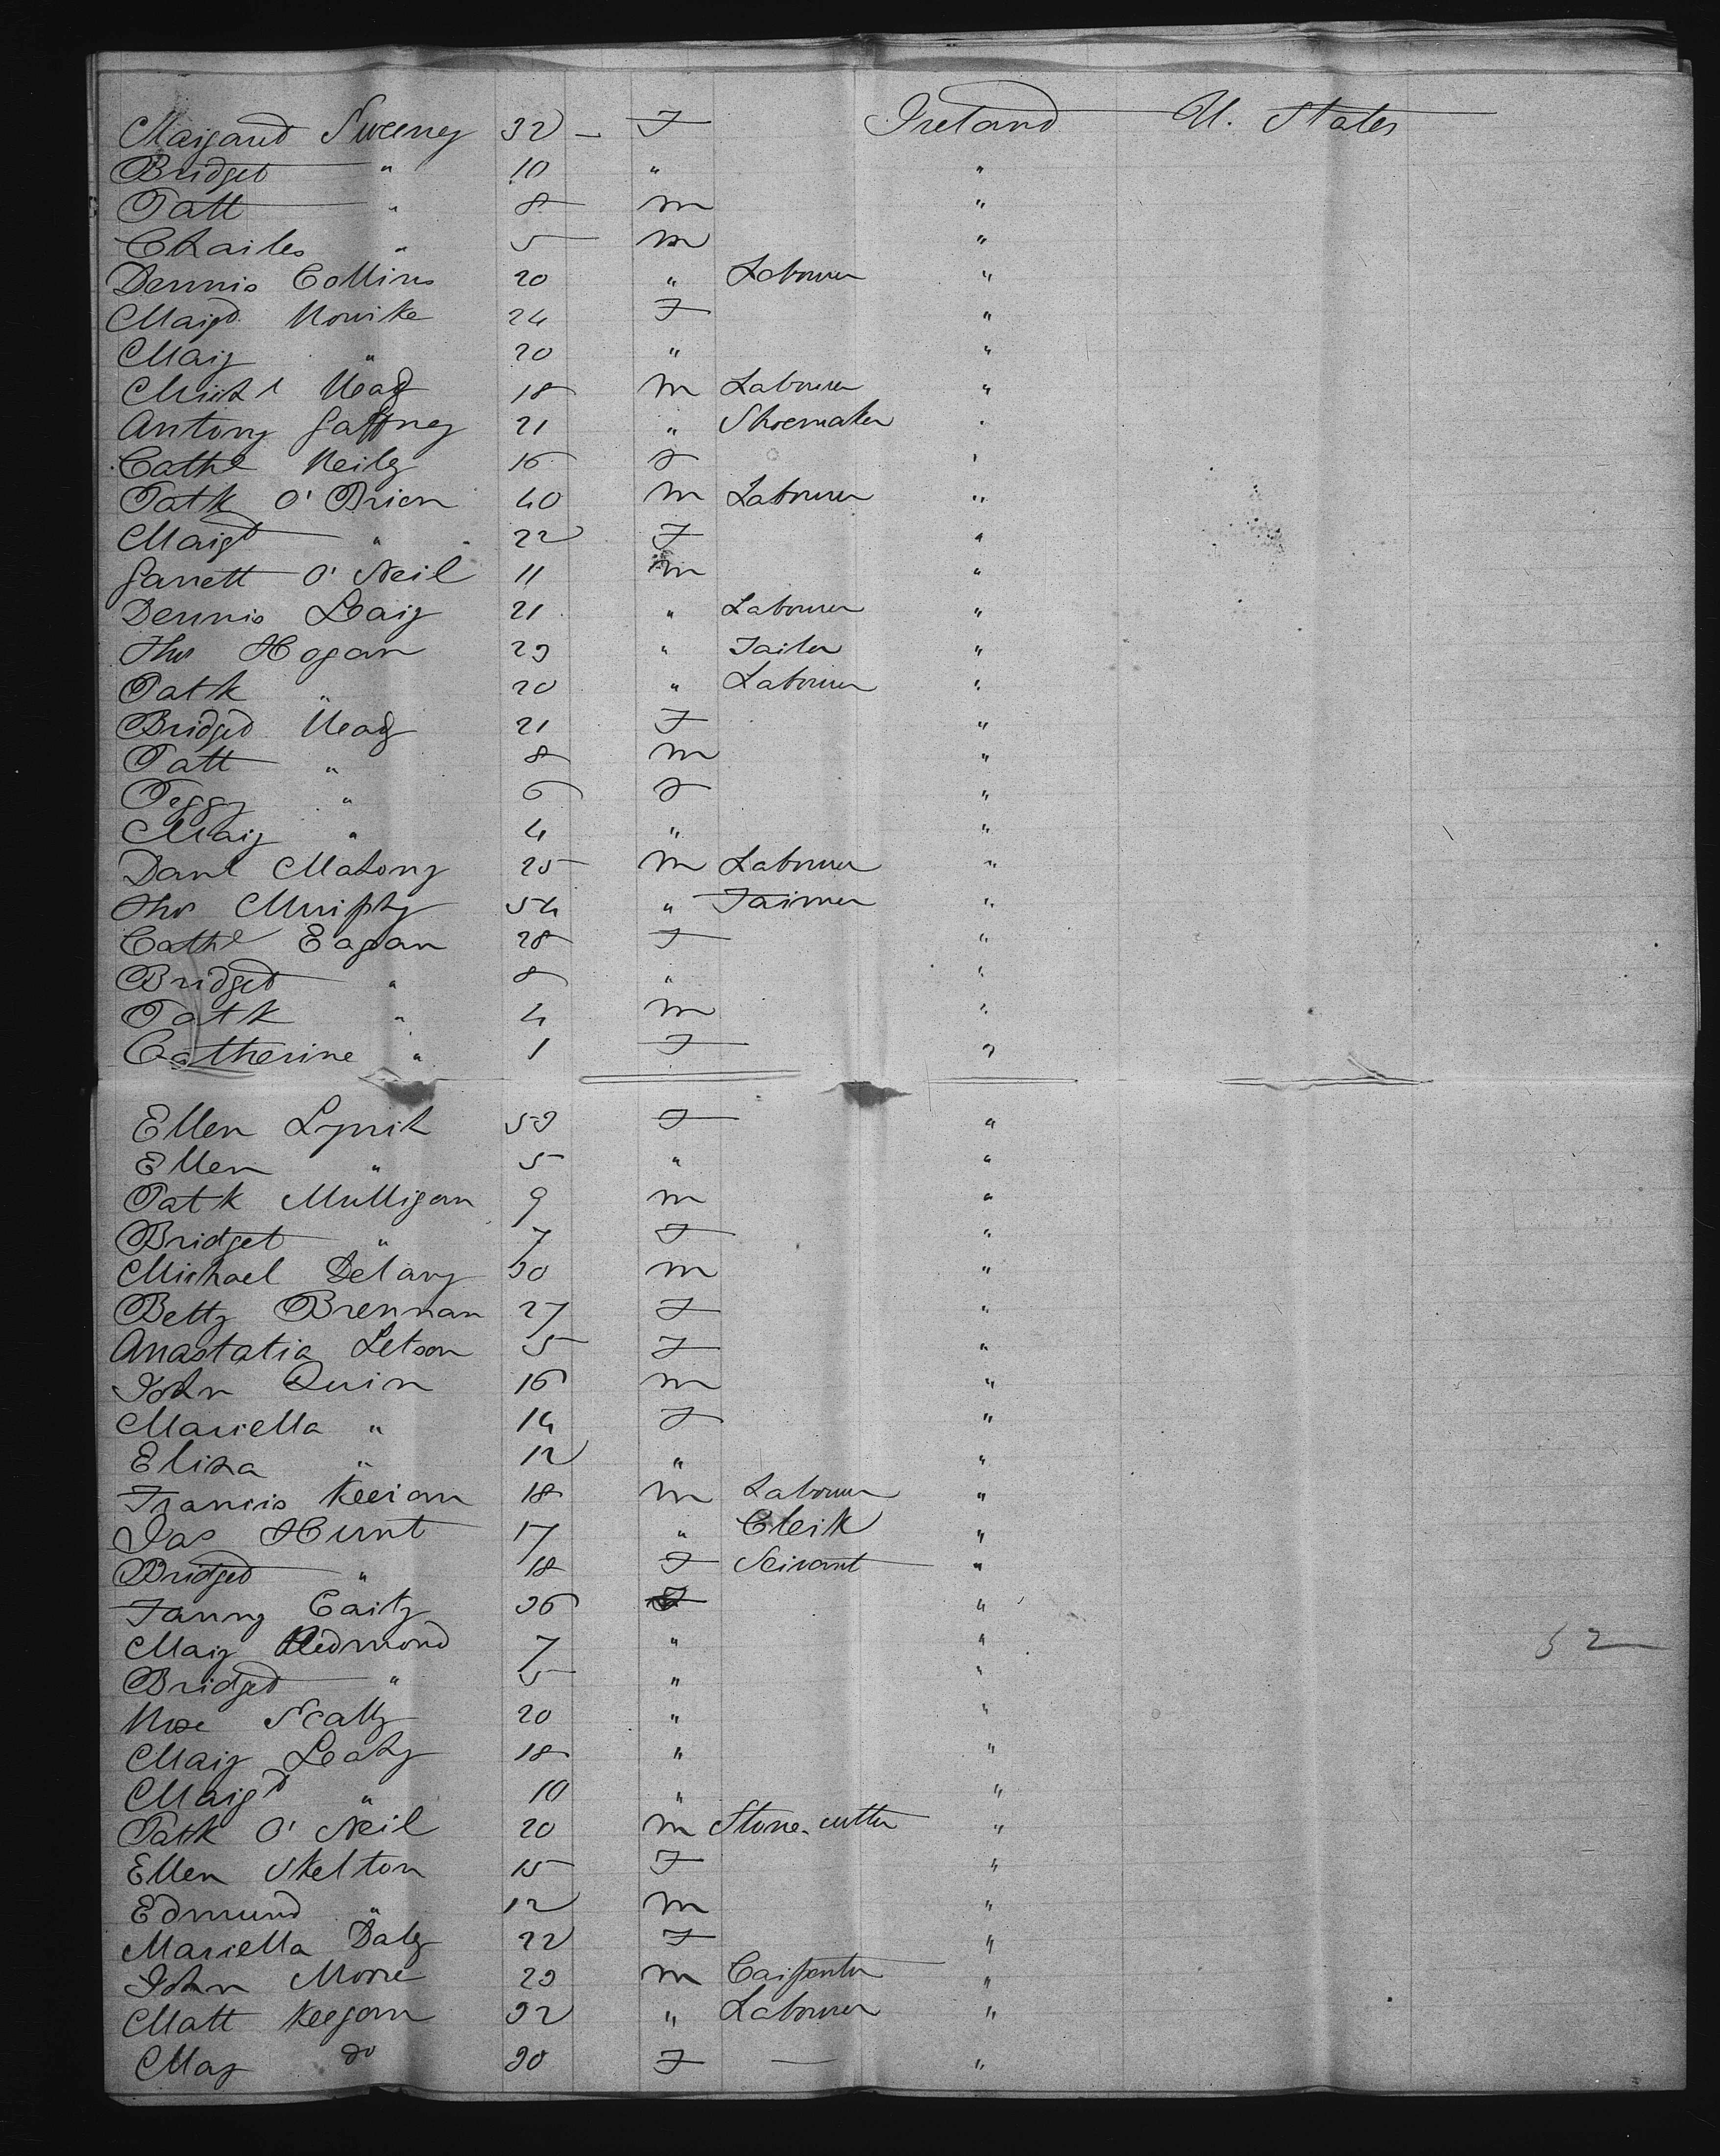 Margaret Sweeny 32 — F Ireland U. States
Bridget " 10 " "
Patt " 8 M "
Charles " 5 M "
Dennis Collins 20 " Labourer "
Margt. 24 F "
Mary " 20 " "
Michl 18 M Labourer "
Antony Gaffney 21 " Shoemaker "
Cathe 16 F "
Patk O'Brien 40 M Labourer "
Margt " 22 F "
Garrett O'Neil 11 M "
Dennis Leary 21 " Labourer "
Thos Hogan 23 " Tailer "
Patk " 20 " Labourer "
Bridget 21 F "
Patt " 8 M "
Peggy " 6 F "
Mary " 4 " "
Danl Mahony 25 M Labourer "
Thos Murphy 54 " Farmer "
Cathe Eagan 28 F "
Bridget " 8 " "
Patk " 4 M "
Catherine " 1 F "
Ellen Lynch 53 F "
Ellen " 5 " "
Patk Mulligan 9 M "
Bridget " 7 F "
Michael Delany 30 M "
Betty Brennan 27 F "
Anastatia Letson 5 F "
John Quin 16 M "
Mariella " 14 F "
Eliza " 12 " "
Francis Keeran 18 M Labourer "
Jas Hunt 17 " Clerk "
Bridget " 18 F Servant "
Fanny Carty 36 F "
Mary Redmond 7 " "
52
Bridget " 5 " "
Rose Scally 20 " "
Mary Leahy 18 " "
Margt " 10 " "
Patk O'Neil 20 M Stone-cutter "
Ellen Skelton 15 F "
Edmund " 12 M "
Mariella Daly 22 F "
John Moore 23 M Carpenter "
Matt Keegan 32 " Labourer "
May do 30 F — "